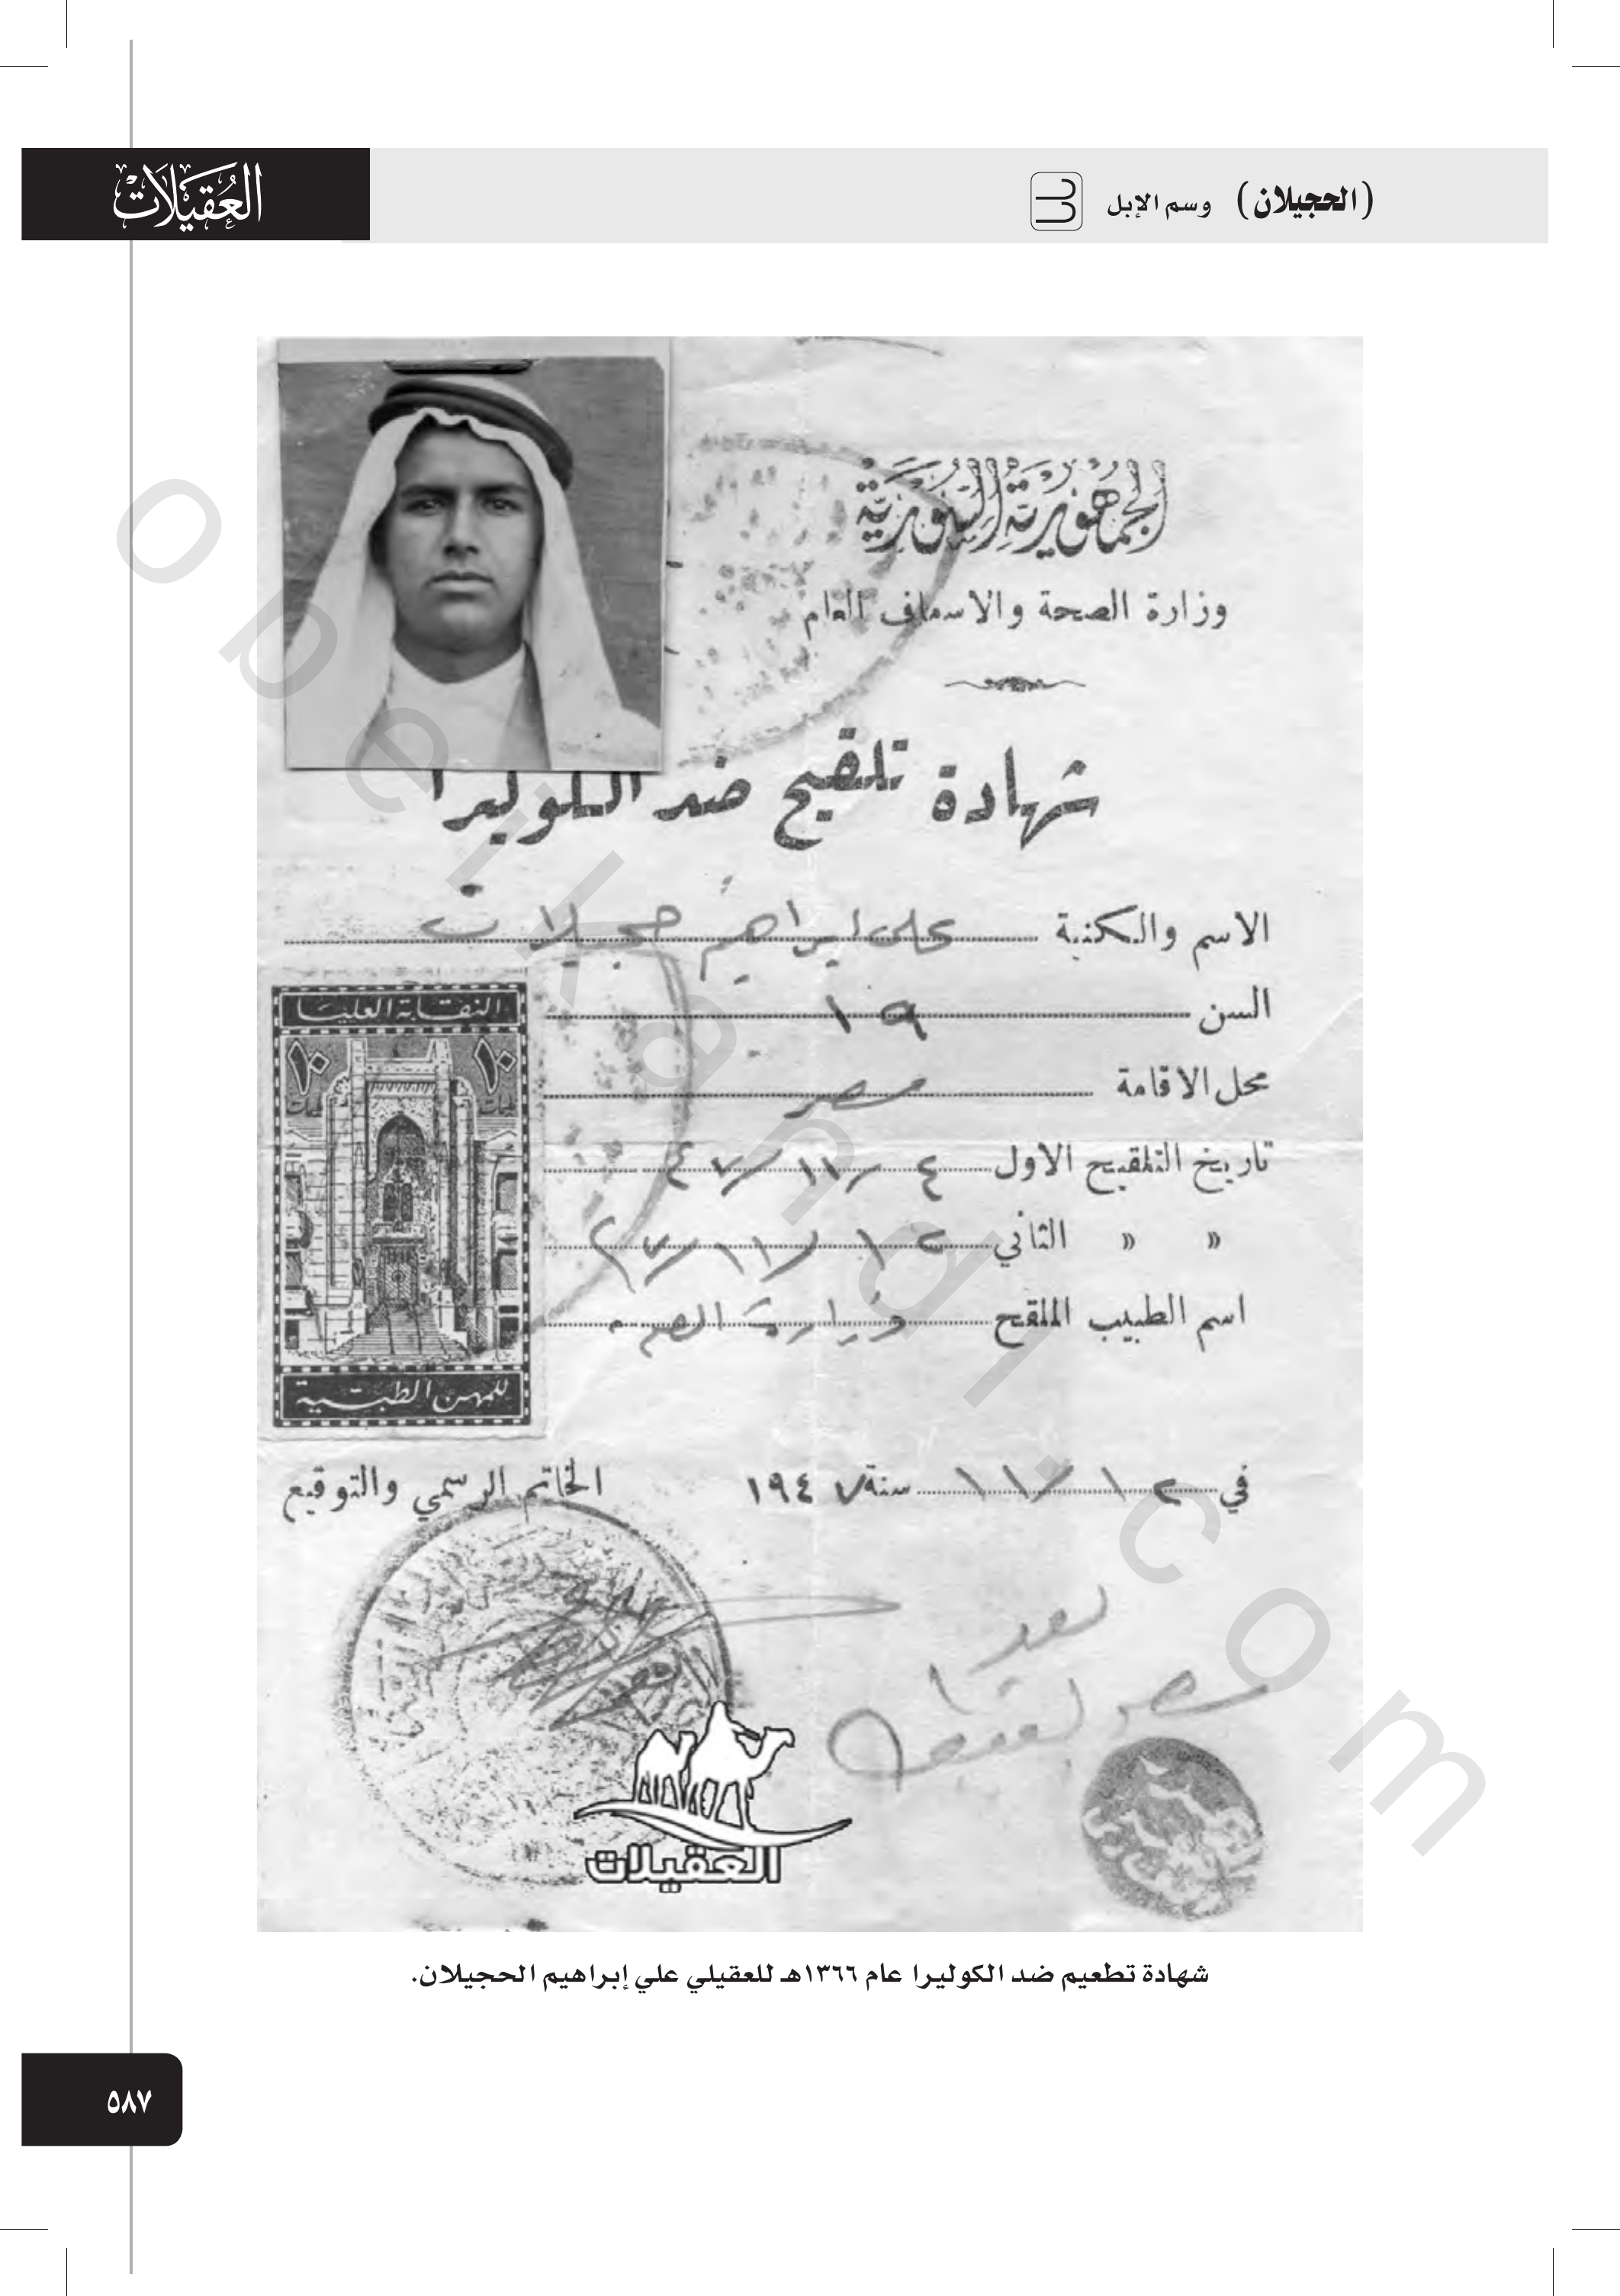 (الحجيلان) وسم الإبل
العقيلات
الجمهورية السورية
وزارة الصحة والاسعاف العام
شهادة تلقيح ضد الكوليرا
الاسم والكنية علي ابراهيم حجيلان
السن ١٩
محل الاقامة مصر
تاريخ التلقيح الاول ٤ / ١١ / ٤٧
» » الثاني
اسم الطبيب الملقح وزارة الصحة
النقابة العليا
١٠ ١٠
للمهن الطبية
في ١١ / سنة ١٩٤٧
الخاتم الرسمي والتوقيع
العقيلات
شهادة تطعيم ضد الكوليرا عام ١٣٦٦هـ للعقيلي علي إبراهيم الحجيلان.
٥٨٧
opeikandl.com